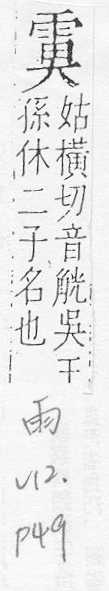 𩃙
姑橫切音觥吳王
孫休二子名也
雨
V12.
P49